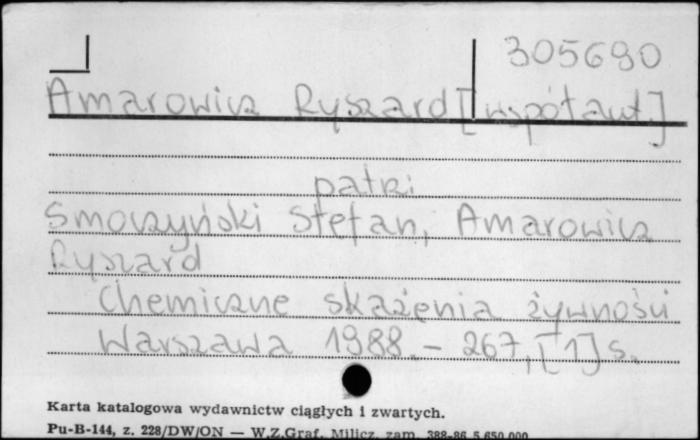 305690
Amarowicz Ryszard [współaut.]
patrz
Smoczyński Stefan, Amarowicz
Ryszard
Chemiczne skażenia żywności
Warszawa 1988. - 267, [1] s.
Karta katalogowa wydawnictw ciągłych i zwartych.
Pu-B-144, z. 228/DW/ON — W.Z.Graf. Milicz, zam. 388-86 5.650.000